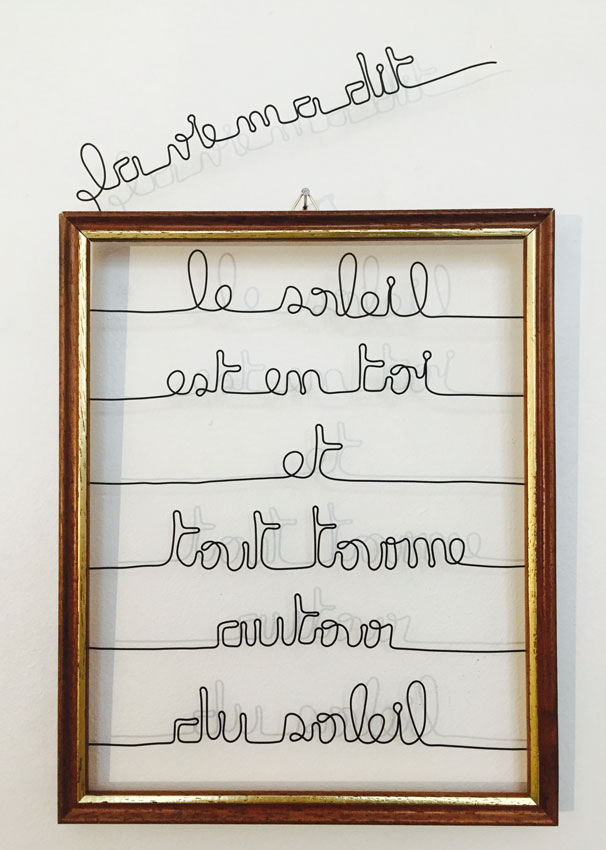 la vie ma dit
le soleil
est en toi
et
tout tourne
autour
du soleil